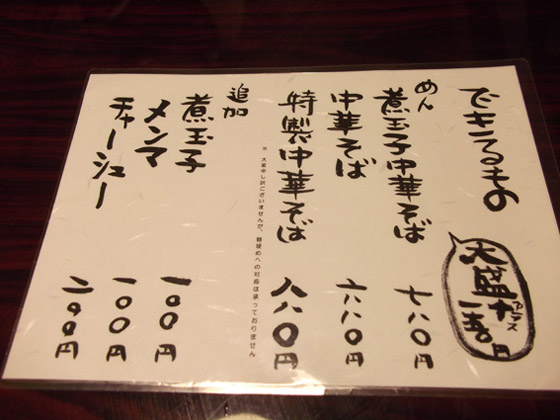 できるもの
大盛+
プラス
めん
煮玉子中華そば 七八〇円
中華そば 六八〇円
特製中華そば 八八〇円
※ 大変申し訳ございませんが、麺硬めへの対応は承っておりません
追加
煮玉子 一〇〇円
メンマ 一〇〇円
チャーシュー 二〇〇円